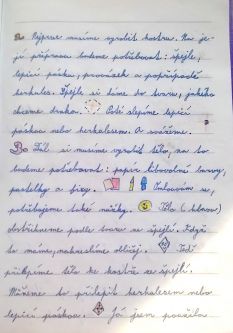 a. Nejprve musíme vyrobit kostru. Na je-
jí přípravu budeme potřebovat: špejle,
lepicí pásku, provázek a popřípadě
herkules. Špejle si dáme do tvaru, jakého
chceme draka. Poté slepíme lepicí
páskou nebo herkulesem. A svážeme.
B. Dál si musíme vyrobit tělo, na to
budeme potřebovat: papír libovolné barvy,
pastelky a fixy.
potřebujeme také nůžky. Tělo (hlavou)
dostřihneme podle tvaru ze špejlí. Když
to máme, nakreslíme obličej. Teď
přilepíme tělo ke kostře ze špejlí.
Můžeme to přilepit herkulesem nebo
lepicí páskou. Já jsem použila